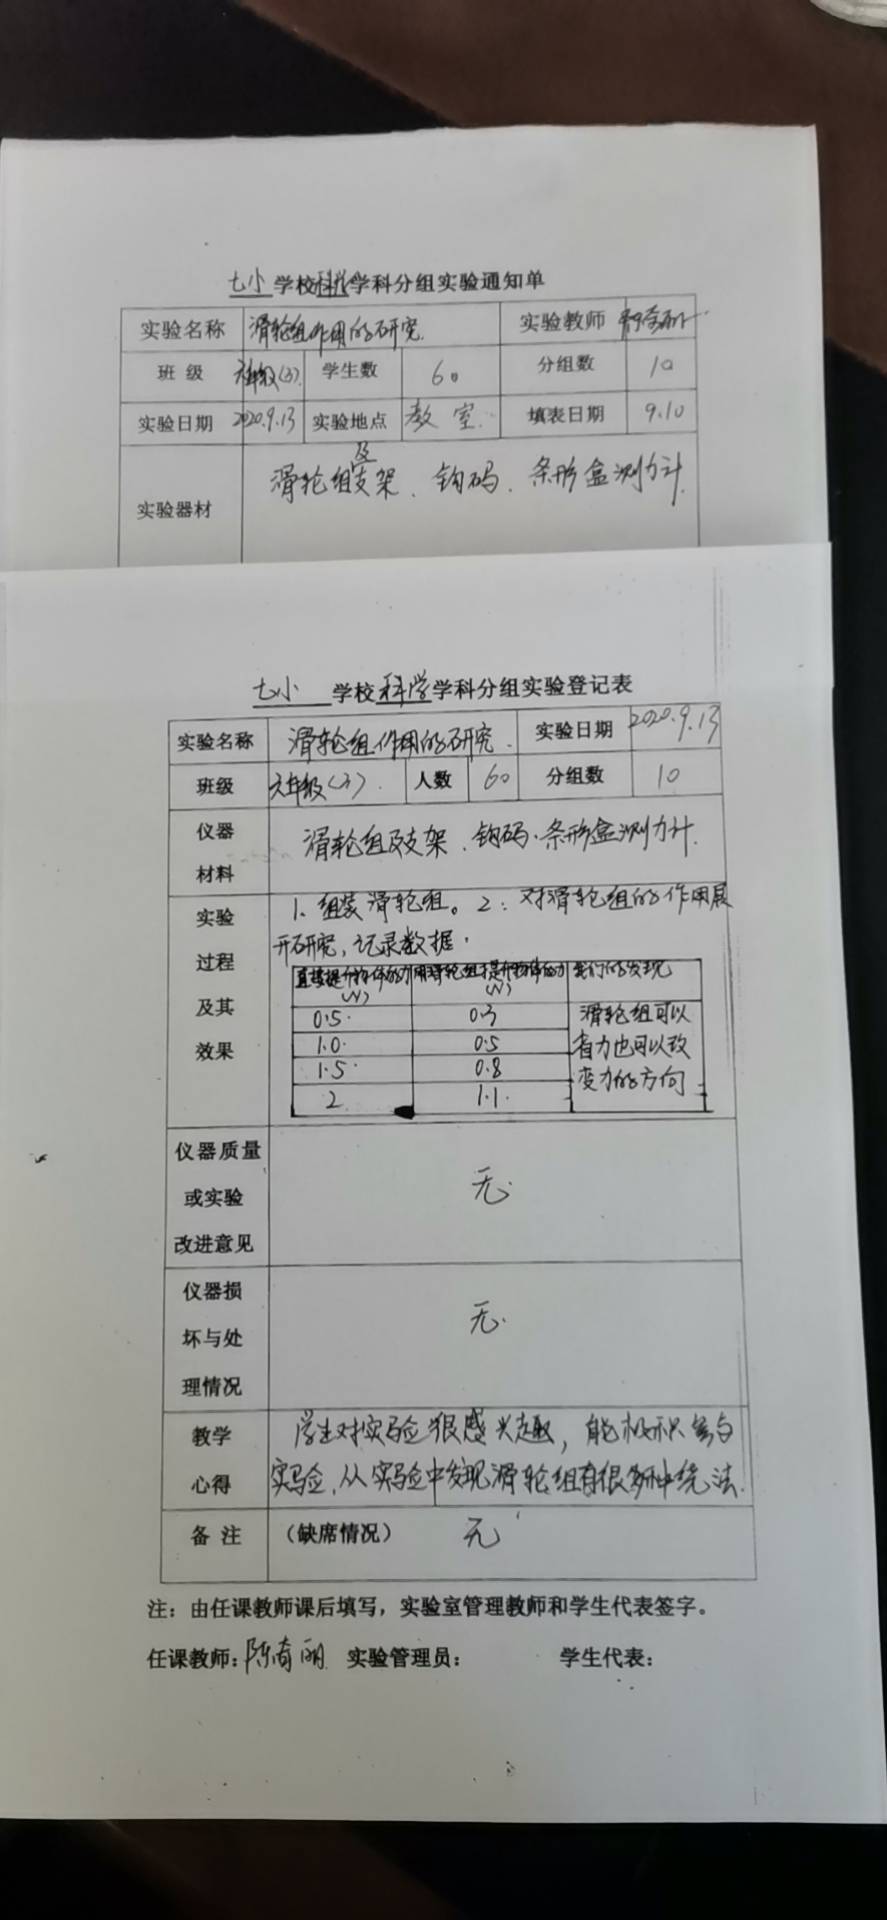 七小学校科学学科分组实验通知单
实验名称 滑轮组作用的研究 实验教师
班级 六年级(3) 学生数 60 分组数 10
实验日期 2020.9.13 实验地点 教室 填表日期 9.10
实验器材 滑轮组及支架、钩码、条形盒测力计
七小 学校科学学科分组实验登记表
实验名称 滑轮组作用的研究. 实验日期 2020.9.13
班级 六年级(3). 人数 60 分组数 10
仪器材料 滑轮组及支架、钩码、条形盒测力计.
实验过程及其效果 1、组装滑轮组。2、对滑轮组的作用展
开研究,记录数据.
直接提升物体的力(N) 用滑轮组提升物体的力(N) 我们的发现
0.5 0.3 滑轮组可以
1.0 0.5 省力也可以改
1.5 0.8 变力的方向
2 1.1
仪器质量或实验改进意见 无.
仪器损坏与处理情况 无.
教学心得 学生对实验很感兴趣,能积极参与
实验,从实验中发现滑轮组有很多种绕法.
备注 (缺席情况) 无
注:由任课教师课后填写,实验室管理教师和学生代表签字。
任课教师:陈奇丽 实验管理员: 学生代表: